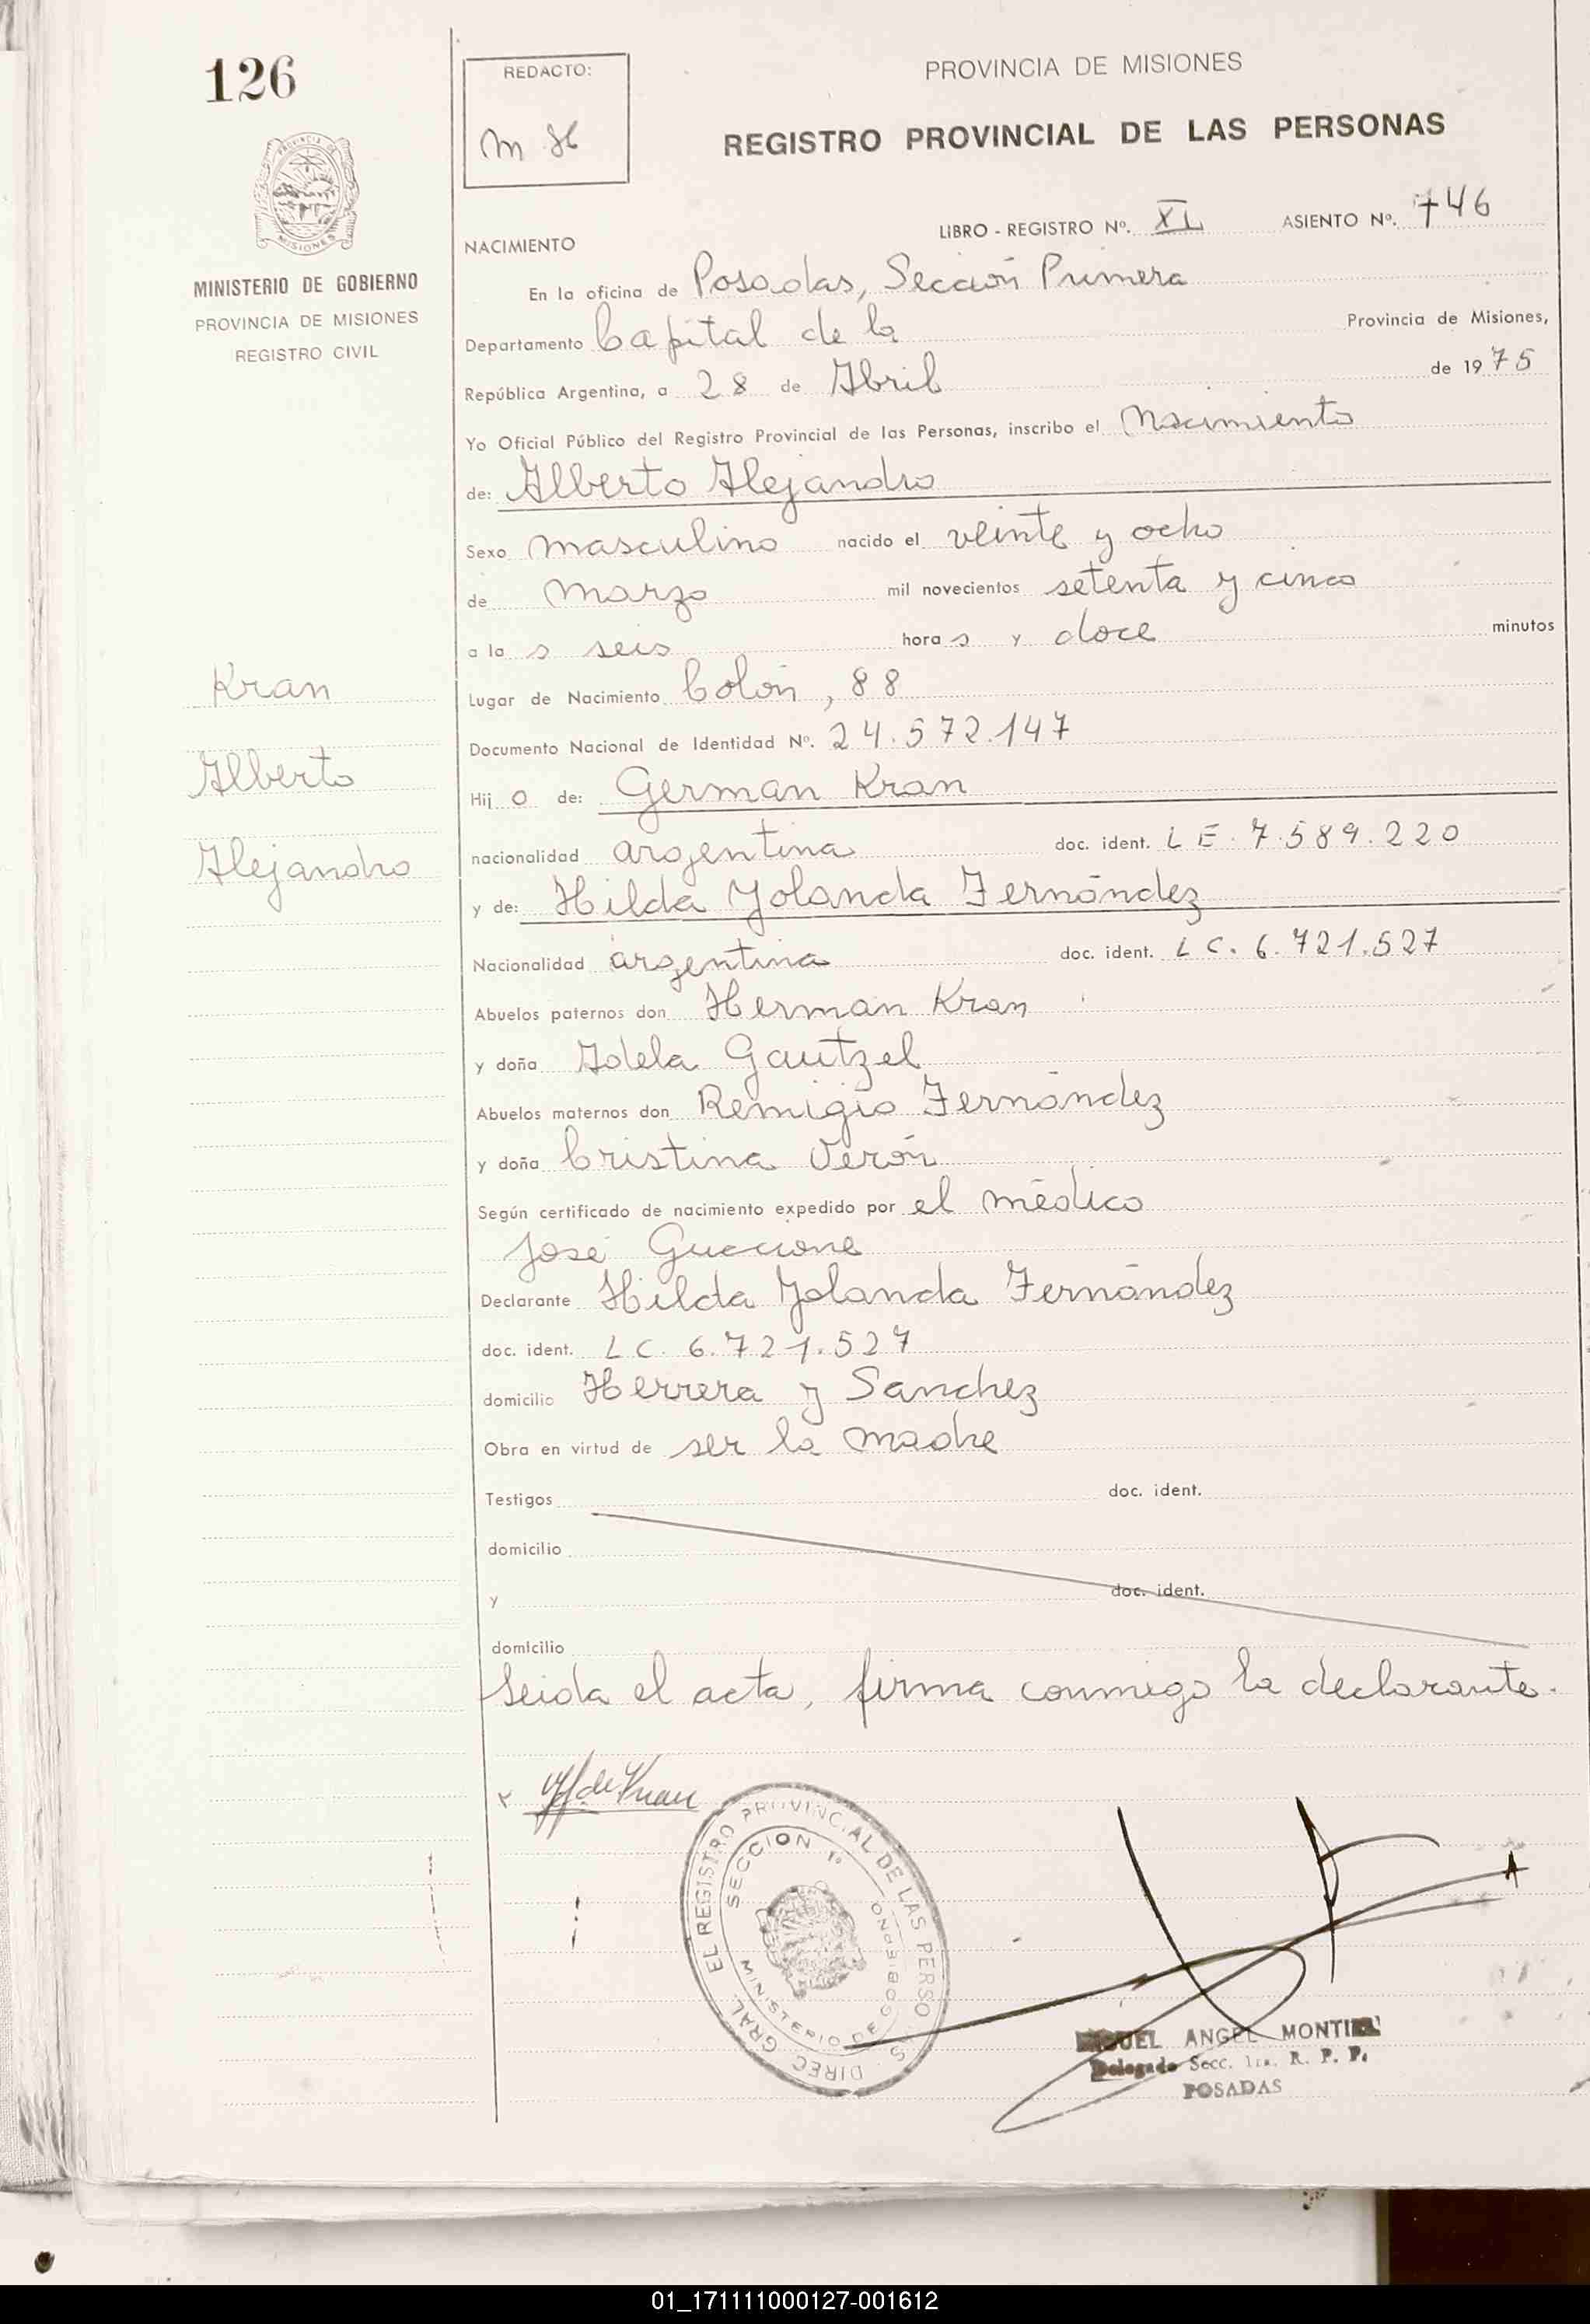 126
REDACTO:
M H
PROVINCIA DE MISIONES
REGISTRO PROVINCIAL DE LAS PERSONAS
PROVINCIA DE
MISIONES
MINISTERIO DE GOBIERNO
PROVINCIA DE MISIONES
REGISTRO CIVIL
LIBRO - REGISTRO Nº. XL ASIENTO Nº. 746
NACIMIENTO
En la oficina de Posadas, Sección Primera
Departamento Capital de la Provincia de Misiones,
República Argentina, a 28 de Abril de 1975
Yo Oficial Público del Registro Provincial de las Personas, inscribo el Nacimiento
de: Alberto Alejandro
Sexo masculino nacido el veinte y ocho
de marzo mil novecientos setenta y cinco
a la s seis hora s y doce minutos
Kran
Alberto
Alejandro
Lugar de Nacimiento Colón, 88
Documento Nacional de Identidad Nº. 24.572.147
Hij o de: German Kran
nacionalidad argentina doc. ident. L E. 7.589.220
y de: Hilda Yolanda Fernández
Nacionalidad argentina doc. ident. L C. 6.721.527
Abuelos paternos don Herman Kran
y doña Adela Gautzel
Abuelos maternos don Remigio Fernández
y doña Cristina Verón
Según certificado de nacimiento expedido por el médico
José Guccione
Declarante Hilda Yolanda Fernández
doc. ident. L C. 6.721.527
domicilio Herrera y Sanchez
Obra en virtud de ser la madre
Testigos doc. ident.
domicilio
y doc. ident.
domicilio
Leida el acta, firma conmigo la declarante.
de Kran
DIREC. GRAL. EL REGISTRO PROVINCIAL DE LAS PERSONAS
SECCION 1º
MINISTERIO DE GOBIERNO
MIGUEL ANGEL MONTIEL
Delegado Secc. 1ra. R. P. P.
POSADAS
01_171111000127-001612